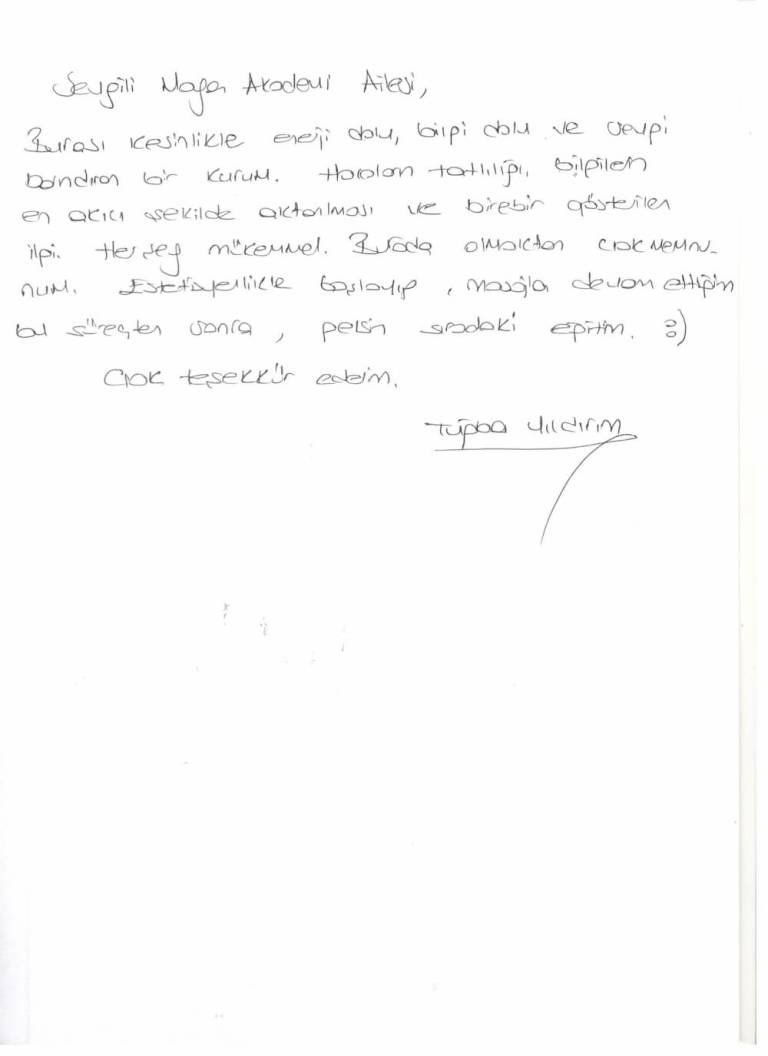 Sevgili Maya Akademi Ailesi,
Burası kesinlikle enerji dolu, bilgi dolu ve sevgi
barındıran bir kurum. Hocaların tatlılığı, bilgilerin
en akıcı şekilde aktarılması ve birebir gösterilen
ilgi. Herşey mükemmel. Burada olmaktan çok memnu-
num. Estetisyenlikle başlayıp, masajla devam ettiğim
bu süreçten sonra, gelsin sıradaki eğitim. :)
Çok teşekkür ederim.
Tuğba Yıldırım